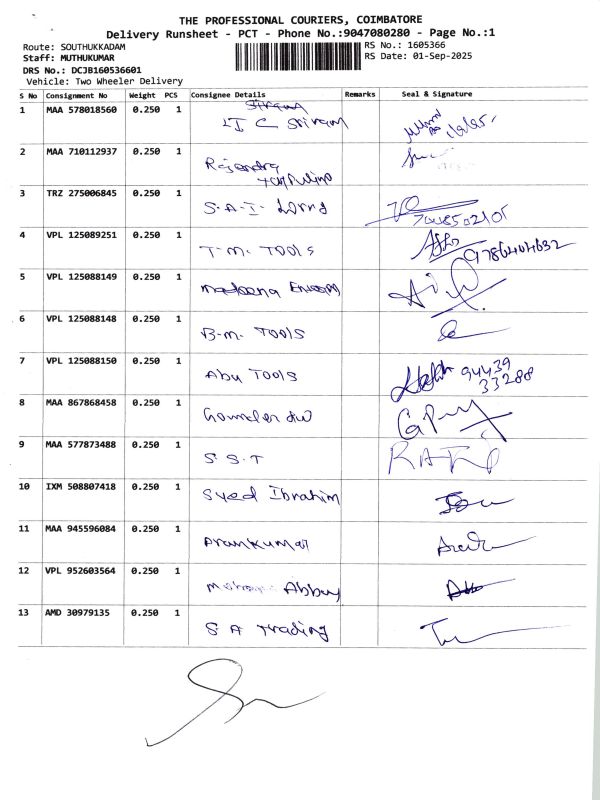 THE PROFESSIONAL COURIERS, COIMBATORE
Delivery Runsheet - PCT - Phone No.:9047080280 - Page No.:1
Route: SOUTHUKKADAM
RS No.: 1605366
Staff: MUTHUKUMAR
RS Date: 01-Sep-2025
DRS No.: DCJB160536601
Vehicle: Two Wheeler Delivery
S No Consignment No Weight PCS Consignee Details Remarks Seal & Signature
1 MAA 578018560 0.250 1 I C Sriram
2 MAA 710112937 0.250 1 Rajendra
3 TRZ 275006845 0.250 1 S.A.I.
4 VPL 125089251 0.250 1 T.M. TOOLS 9786404632
5 VPL 125088149 0.250 1
6 VPL 125088148 0.250 1 B.M. TOOLS
7 VPL 125088150 0.250 1 Abu TOOLS 94439
33288
8 MAA 867868458 0.250 1
9 MAA 577873488 0.250 1 S.S.T
10 IXM 508807418 0.250 1 Syed Ibrahim
11 MAA 945596084 0.250 1 Arunkumar
12 VPL 952603564 0.250 1
13 AMD 30979135 0.250 1 S.A Trading